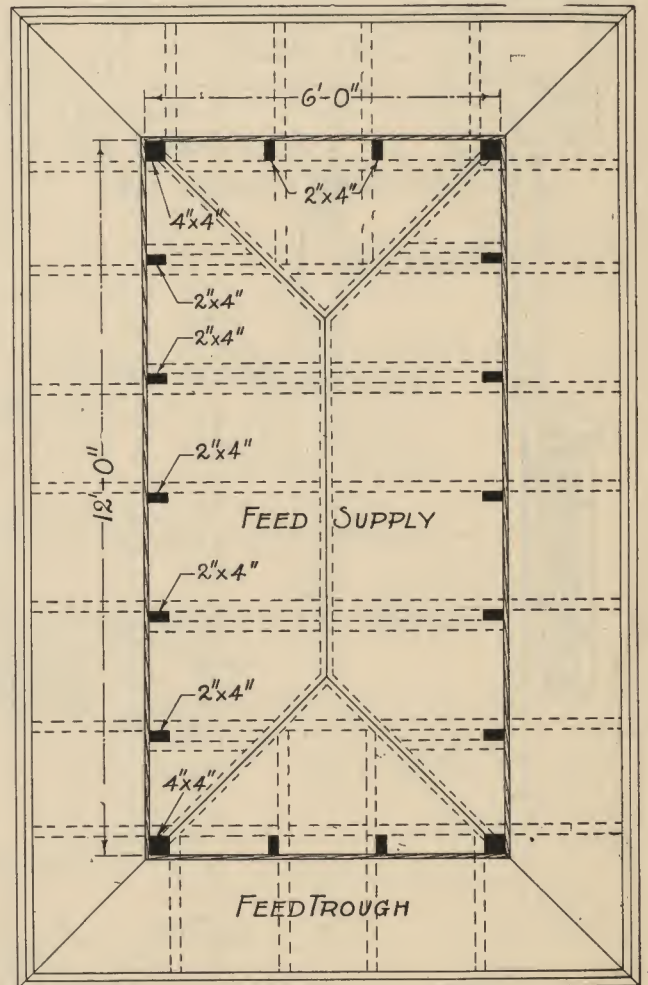 6'-0"
2"x4"
4"x4"
2"x4"
2"x4"
12'-0"
2"x4"
FEED SUPPLY
2"x4"
2"x4"
4"x4"
FEED TROUGH